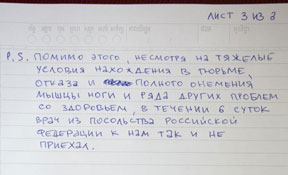 ЛИСТ 3 ИЗ 3
P.S. ПОМИМО ЭТОГО, НЕСМОТРЯ НА ТЯЖЕЛЫЕ
УСЛОВИЯ НАХОЖДЕНИЯ В ТЮРЬМЕ,
ОТКАЗА И ПОЛНОГО ОНЕМЕНИЯ
МЫШЦЫ НОГИ И РЯДА ДРУГИХ ПРОБЛЕМ
СО ЗДОРОВЬЕМ, В ТЕЧЕНИИ 6 СУТОК
ВРАЧ ИЗ ПОСОЛЬСТВА РОССИЙСКОЙ
ФЕДЕРАЦИИ К НАМ ТАК И НЕ
ПРИЕХАЛ.